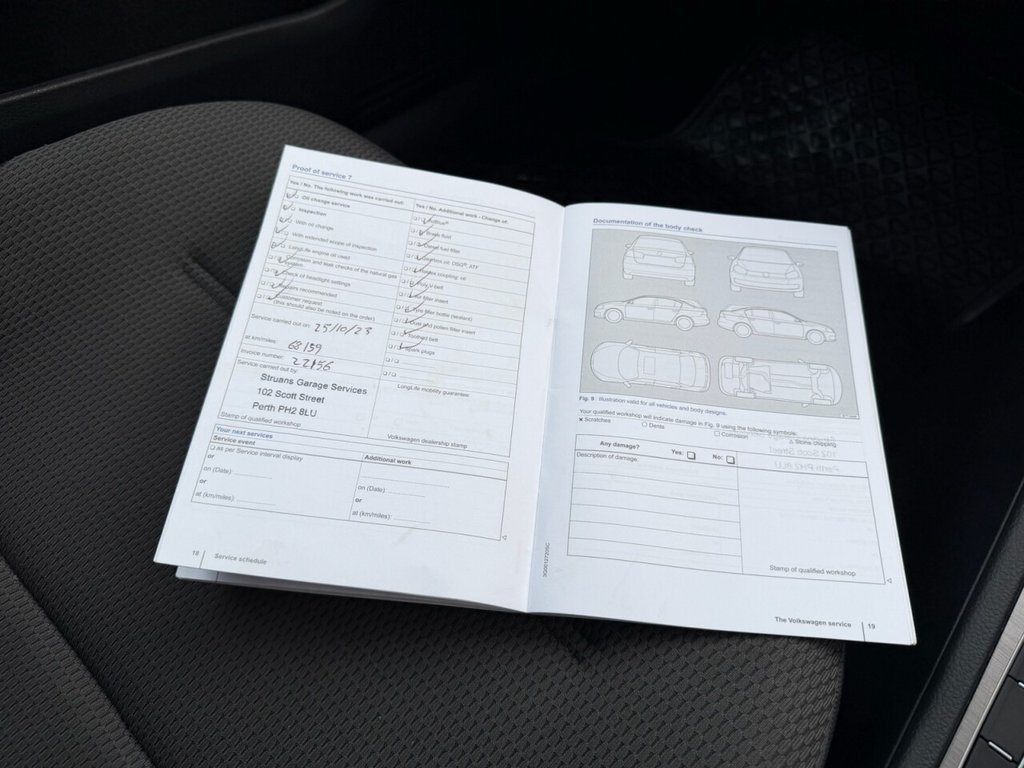 Proof of service 7
Yes / No. The following work was carried out:
Oil change service
Inspection
With oil change
With extended scope of inspection
LongLife engine oil used
Corrosion and leak checks of the natural gas system
Check of headlight settings
Repairs recommended
Customer request
(this should also be noted on the order)
Service carried out on: 25/10/23
at km/miles: 68159
Invoice number: 22156
Service carried out by:
Struans Garage Services
102 Scott Street
Perth PH2 8LU
Stamp of qualified workshop
Yes / No. Additional work - Change of:
Brake fluid
Diesel fuel filter
Gearbox oil: DSG®, ATF
Haldex coupling: oil
Poly V belt
Air filter insert
Tyre filler bottle (sealant)
Dust and pollen filter insert
Toothed belt
Spark plugs
LongLife mobility guarantee
Volkswagen dealership stamp
Your next services
Service event
as per Service interval display
or
on (Date):
or
at (km/miles):
Additional work
on (Date):
or
at (km/miles):
18 Service schedule
Documentation of the body check
Fig. 9 Illustration valid for all vehicles and body designs.
Your qualified workshop will indicate damage in Fig. 9 using the following symbols:
x Scratches
Dents
Corrosion
Stone chipping
Any damage? Yes: No:
Description of damage:
Stamp of qualified workshop
The Volkswagen service 19